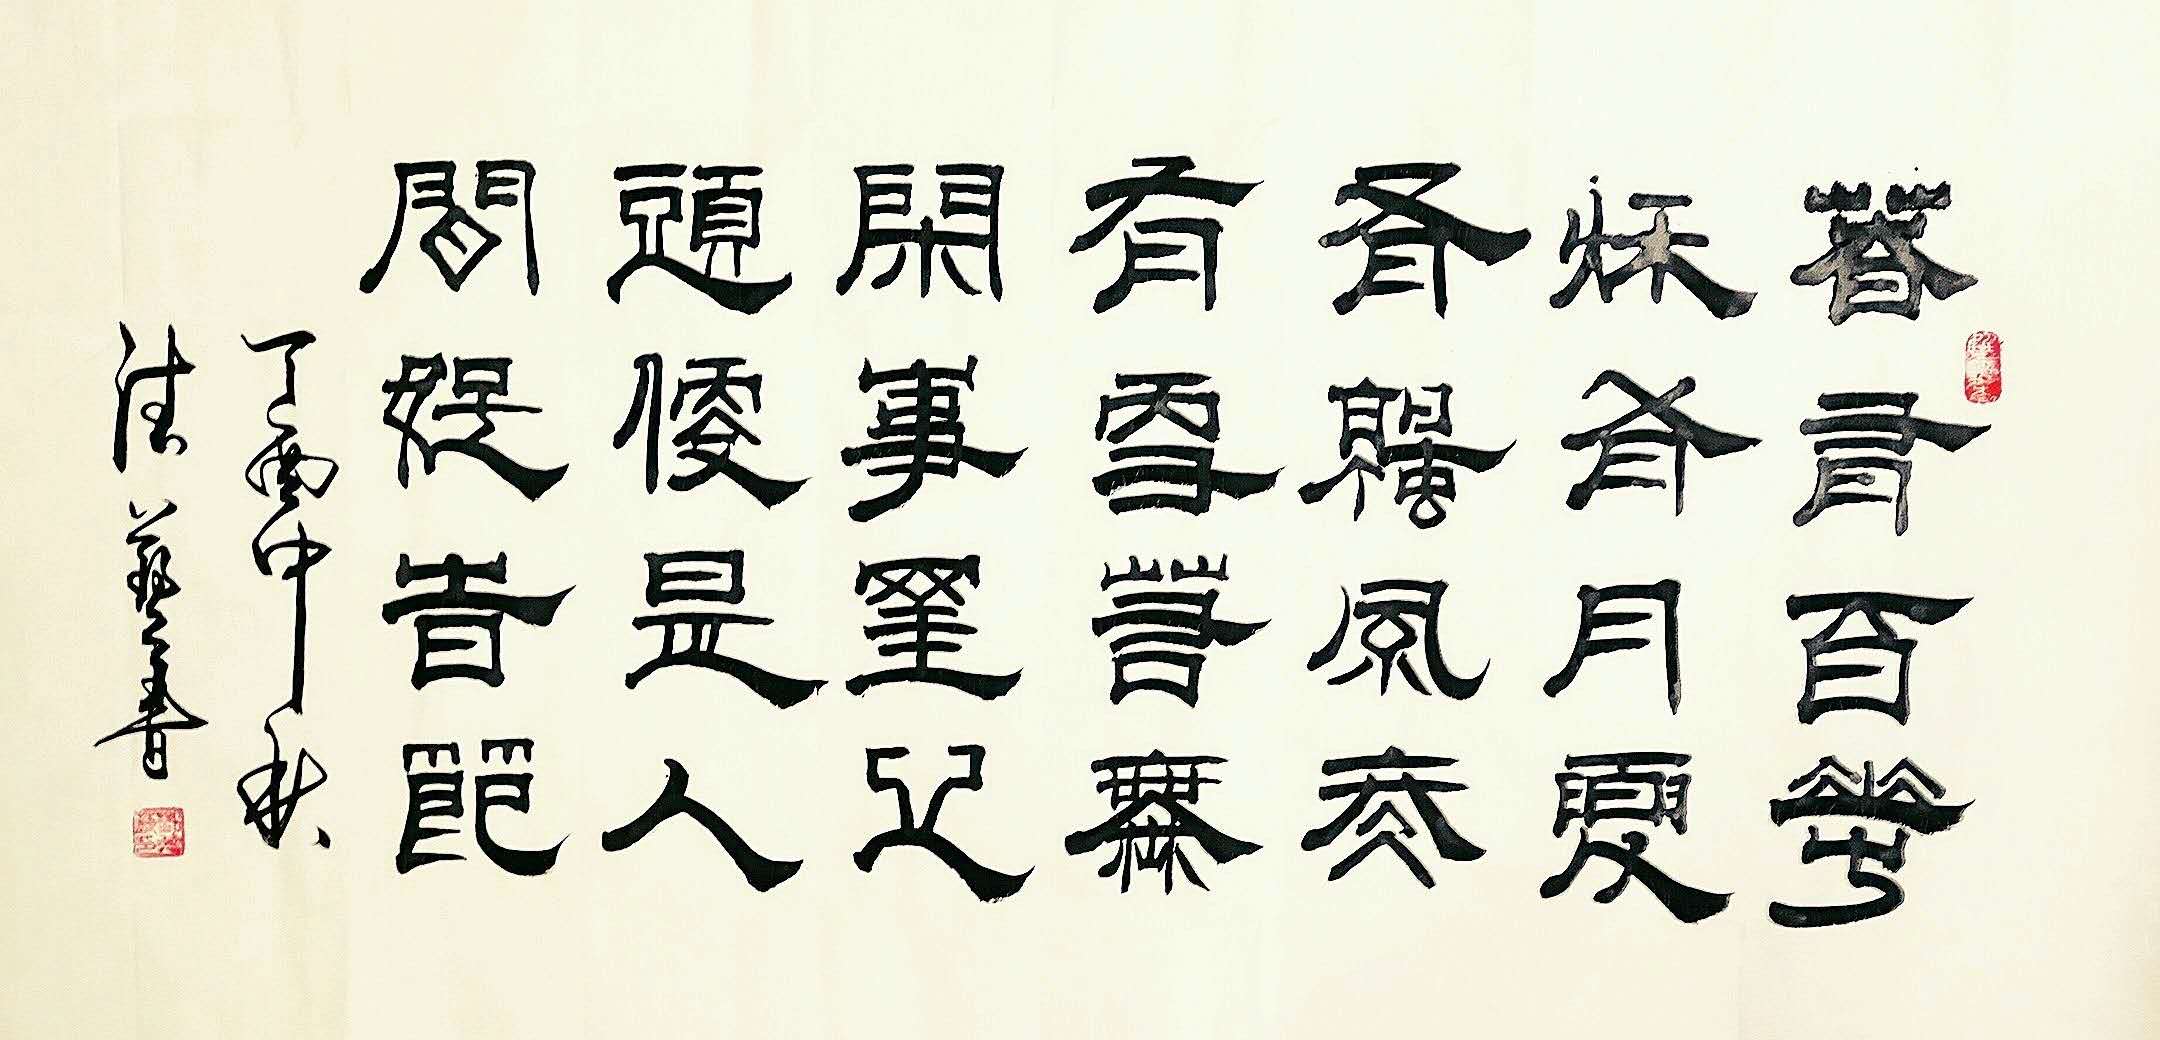 春有百花
秋有月夏
有涼風冬
有雪若無
閑事罣心
頭便是人
間好旹節
丁酉中秋
藝書